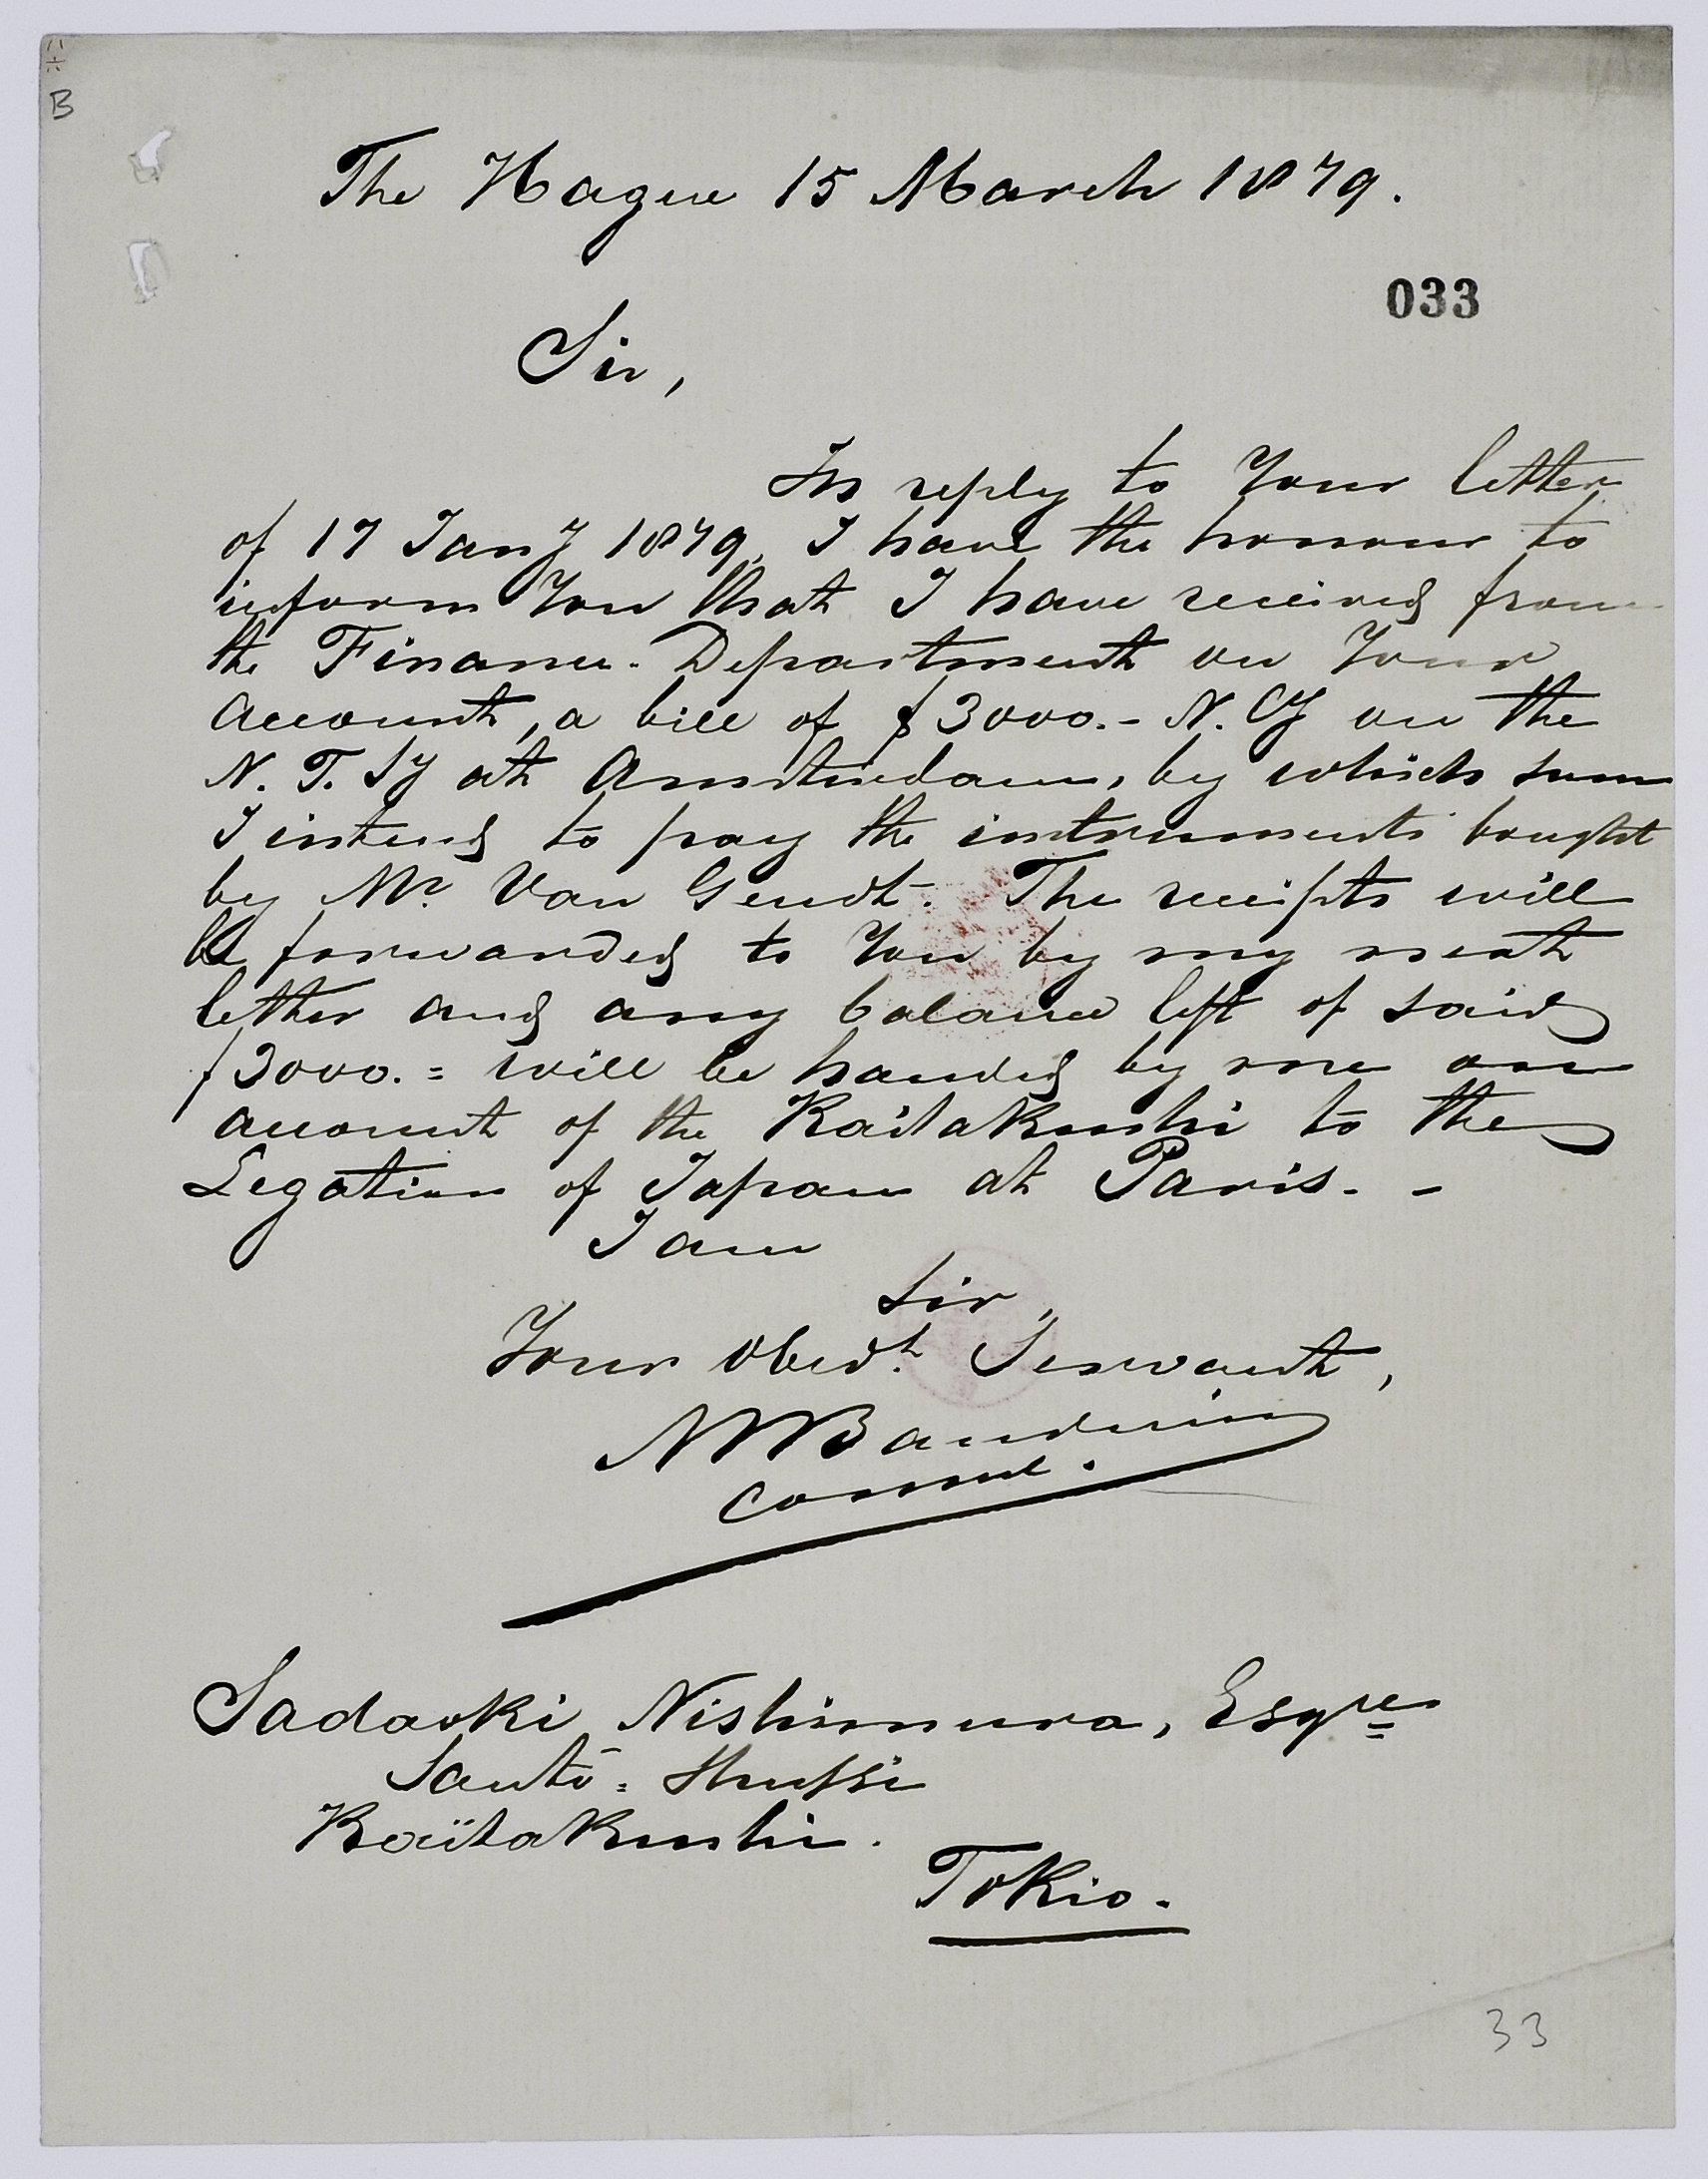 B
The Hague 15 March 1879.
033
Sir,
In reply to Your letter
of 17 Jany 1879, I have the honour to
inform You that I have received from
the Finance-Department on Your
Account, a bill of ƒ3000.- N. Cy on the
N. T. Sy at Amsterdam, by which sum
I intend to pay the instruments bought
by Mr. Van Gendt. The receipts will
be forwarded to You by my next
letter and any balance left of said
ƒ3000.= will be handed by me on
account of the Kaitakushi to the
Legation of Japan at Paris. -
I am
Sir,
Your Obedt. Servant,
Bauduin
Consul.
Sadaaki Nishimura, Esqre
Kaïtakushi.
Tokio.
33